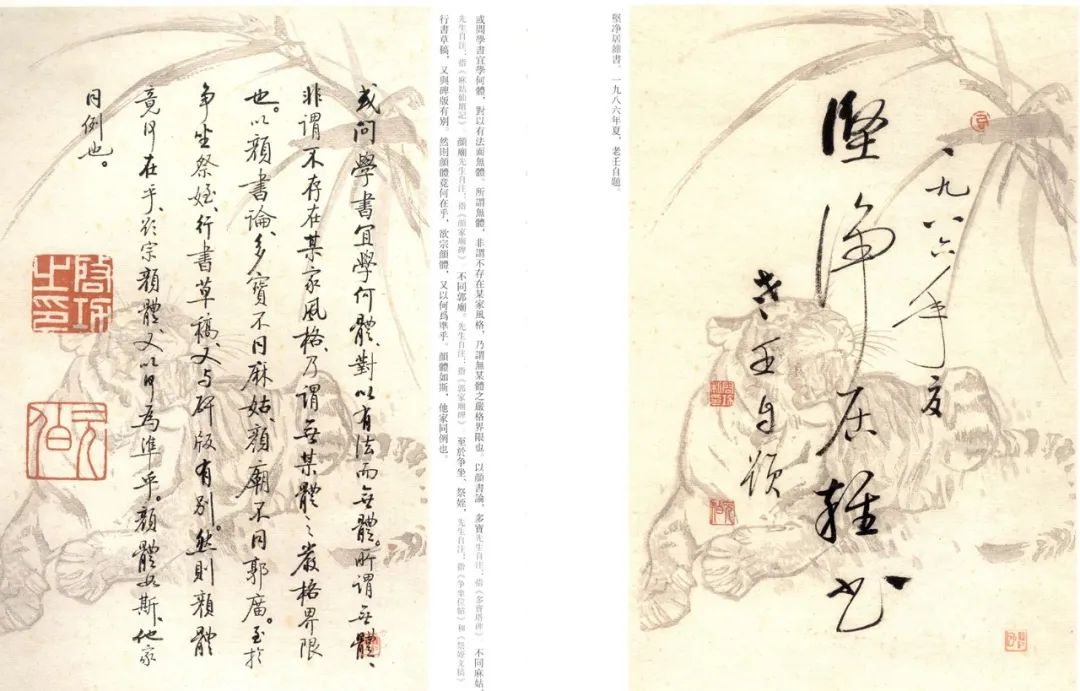 一九八六年夏
堅淨居雜书
老壬自題
堅净居雜書。一九八六年夏,老壬自題。
或問學書宜學何體,對以有法而無體。所謂無體,非謂不存在某家風格,乃謂無某體之嚴格界限也。以顏書論,多寶先生自注:指《多寶塔碑》 不同麻姑,
先生自注:指《麻姑仙壇記》。顏廟先生自注:指《顏家廟碑》 不同郭廟。先生自注:指《郭家廟碑》 至於争坐、祭姪,先生自注:指《争坐位帖》和《祭姪文稿》
行書草稿,又與碑版有别。然則顏體竟何在乎,欲宗顏體,又以何爲準乎。顏體如斯,他家同例也。
或问學書宜學何體、對以有法而無體。所謂無體、
非謂不存在某家風格、乃謂無某體之嚴格界限
也。以顏書論、多寶不同麻姑、顏廟不同郭廟。至於
争坐祭姪、行書草稿、又与碑版有别。然則顏體
竟何在乎、欲宗顏體、又以何為準乎。顏體如斯、他家
同例也。
啓功之印
元白